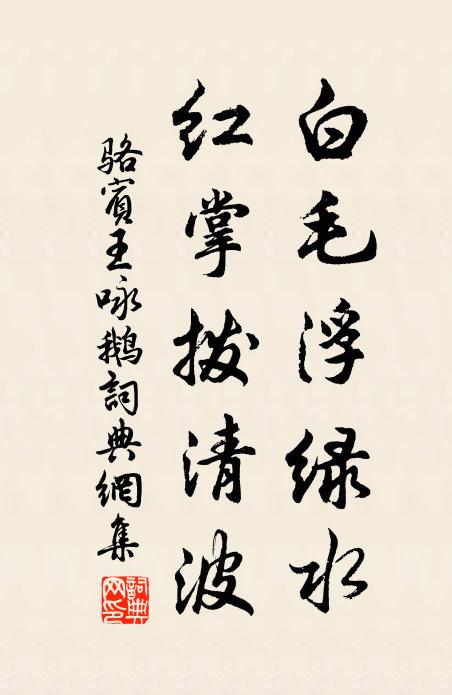 白毛浮绿水
红掌拨清波
骆賓王咏鹅詞典網集
詞典网印